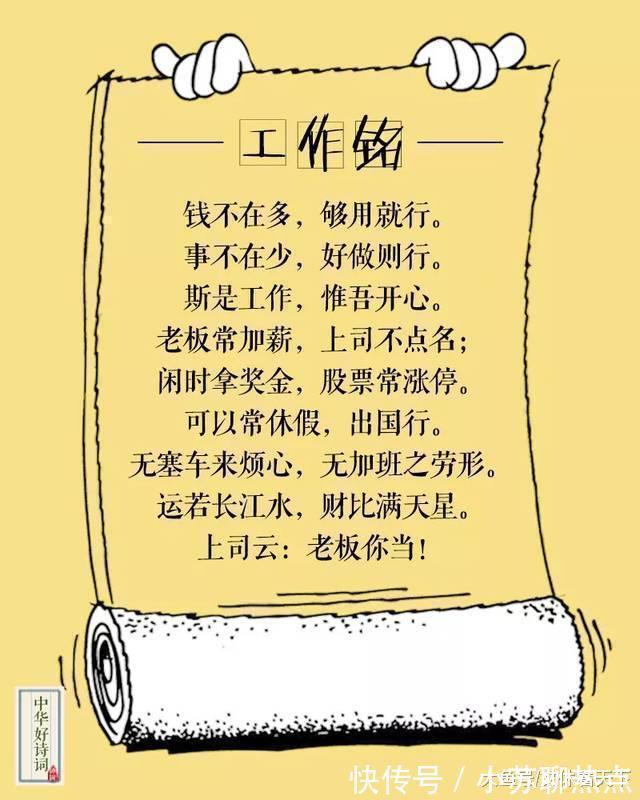 工作铭
钱不在多，够用就行。
事不在少，好做则行。
斯是工作，惟吾开心。
老板常加薪，上司不点名；
闲时拿奖金，股票常涨停。
可以常休假，出国行。
无塞车来烦心，无加班之劳形。
运若长江水，财比满天星。
上司云：老板你当！
中华好诗词
快传号／小芳聊热点